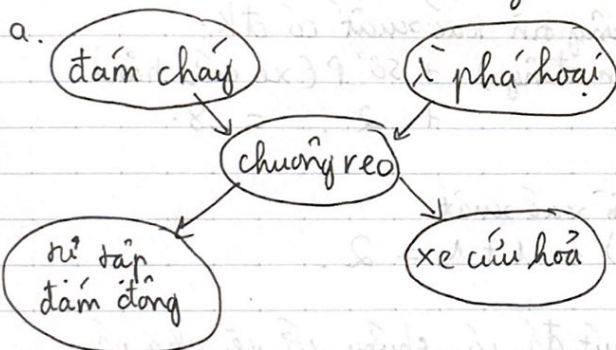 a.
đám cháy
phá hoại
chuông reo
tụ tập
đám đông
xe cứu hoả